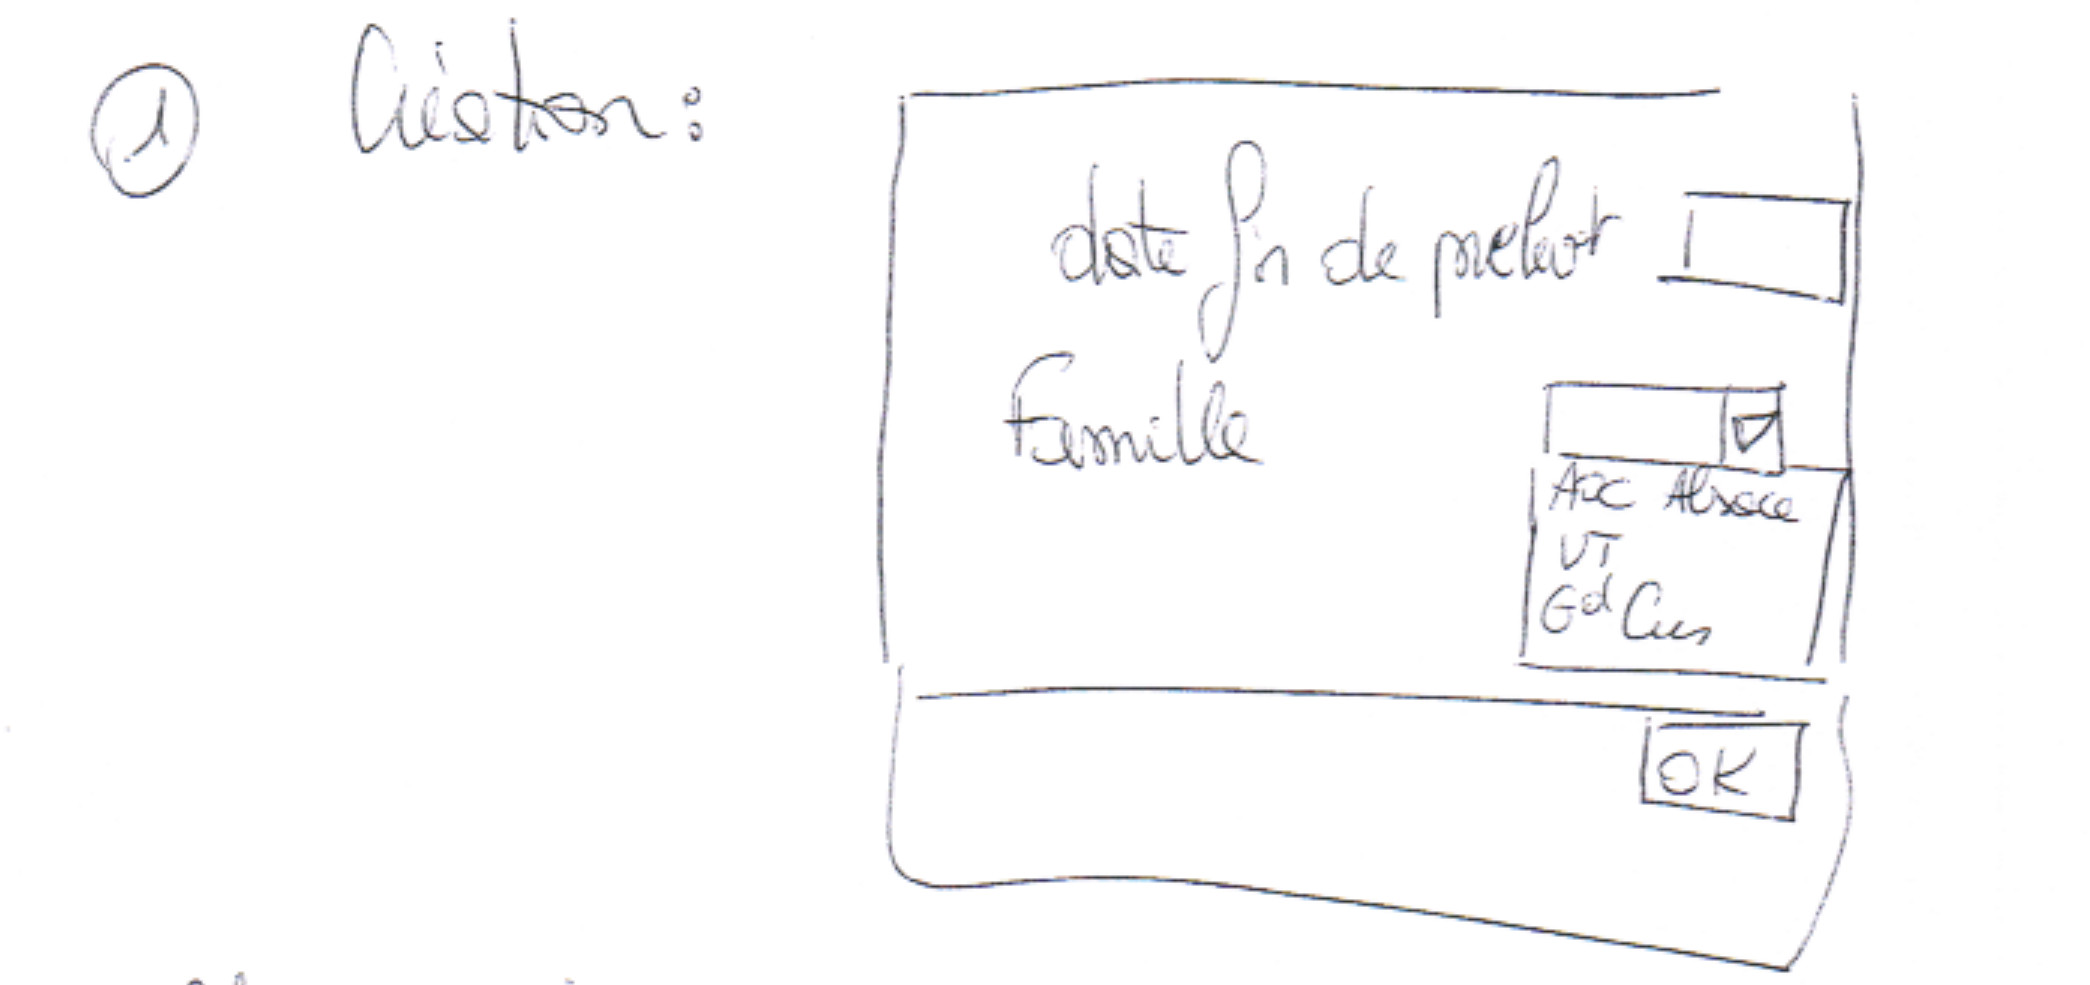 ① Création :
date fin de prélevt
Famille
AOC Alsace
VT
Gd Crus
OK